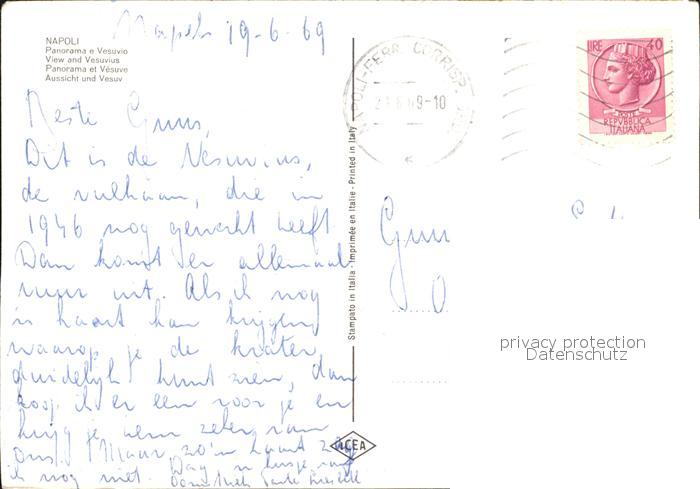 Napels 19-6-69
NAPOLI
Panorama e Vesuvio
View and Vesuvius
Panorama et Vésuve
Aussicht und Vesuv
Beste Guus,
Dit is de Vesuvius,
de vulkaan, die in
1946 nog gewerkt heeft
Dan komt er allemaal
vuur uit. Als ik nog
'n kaart kan krijgen
waarop je de krater
duidelijk kunt zien, dan
koop ik er een voor je en
krijg je hem zeker van
ons. Maar zo'n kaart zag
ik nog niet. Dag
Stampato in Italia - Imprimée en Italie - Printed in Italy
ACEA
POLI-FERR. CORRISP.
69-10
LIRE 40
POSTE
REPVBBLICA
ITALIANA
Guu
privacy protection
Datenschutz